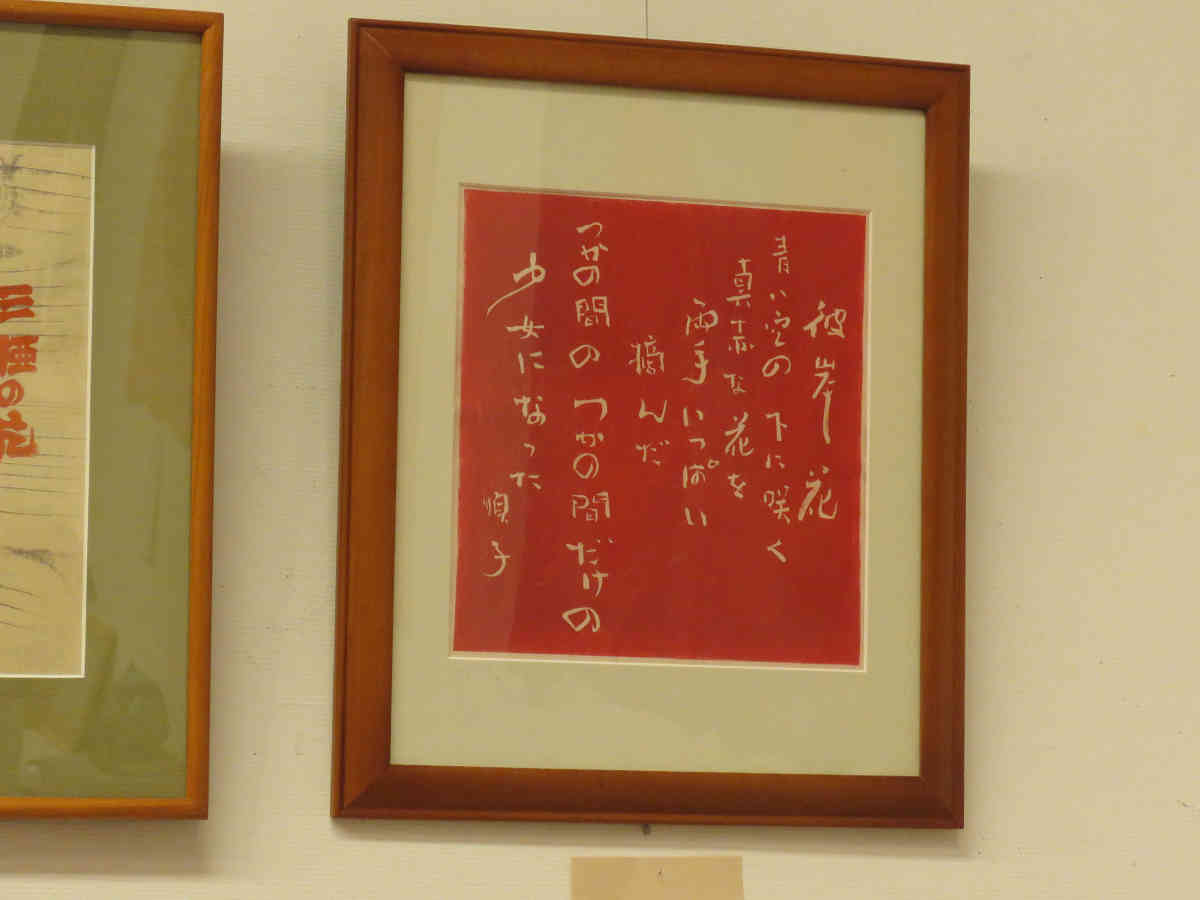 彼岸花
青い空の下に咲く
真赤な花を
両手いっぱい
摘んだ
つかの間のつかの間だけの
少女になった
順子